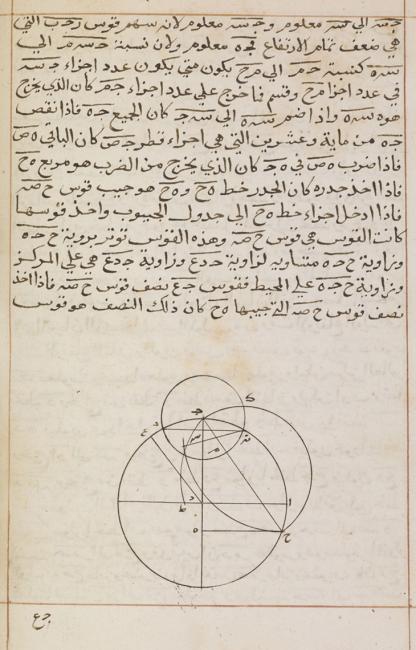 جسه الي سه معلوم و جسه معلوم لان سهم قوس رجب التي
هي ضعف تمام الارتفاع فجه معلوم ولان نسبة جسه مر الي
سه كنسبة جمر الي مرح يكون متي يكون عدد اجزاء جسه
في عدد اجزا مرح وقسم فما خرج علي عدد اجزاء جمر كان الذي يخرج
هو سه واذا ضم سه الي سج كان الجميع جه فاذا نقص
جه من ماية وعشرين التي هي اجزاء قطر جص كان الباقي هص
فاذا ضرب هص في هج كان الذي يخرج من الضرب هو مربع هح
فاذا اخذ جدره كان الجدر خط هح و هح هو جيب قوس ح صه
فاذا ادخل اجزاء خط هح الي جدول الجيوب واخذ قوسها
كانت القوس هي قوس ح صه وهذه القوس توتر بزوية ح جه
وزاوية ح جه متساوية لزاوية جدع وزاوية جدع هي علي المركز
وزاوية ح جه علي المحيط فقوس جع نصف قوس ح صه فاذا اخذ
نصف قوس ح صه التي جيبها هح كان ذلك النصف هو قوس
جع